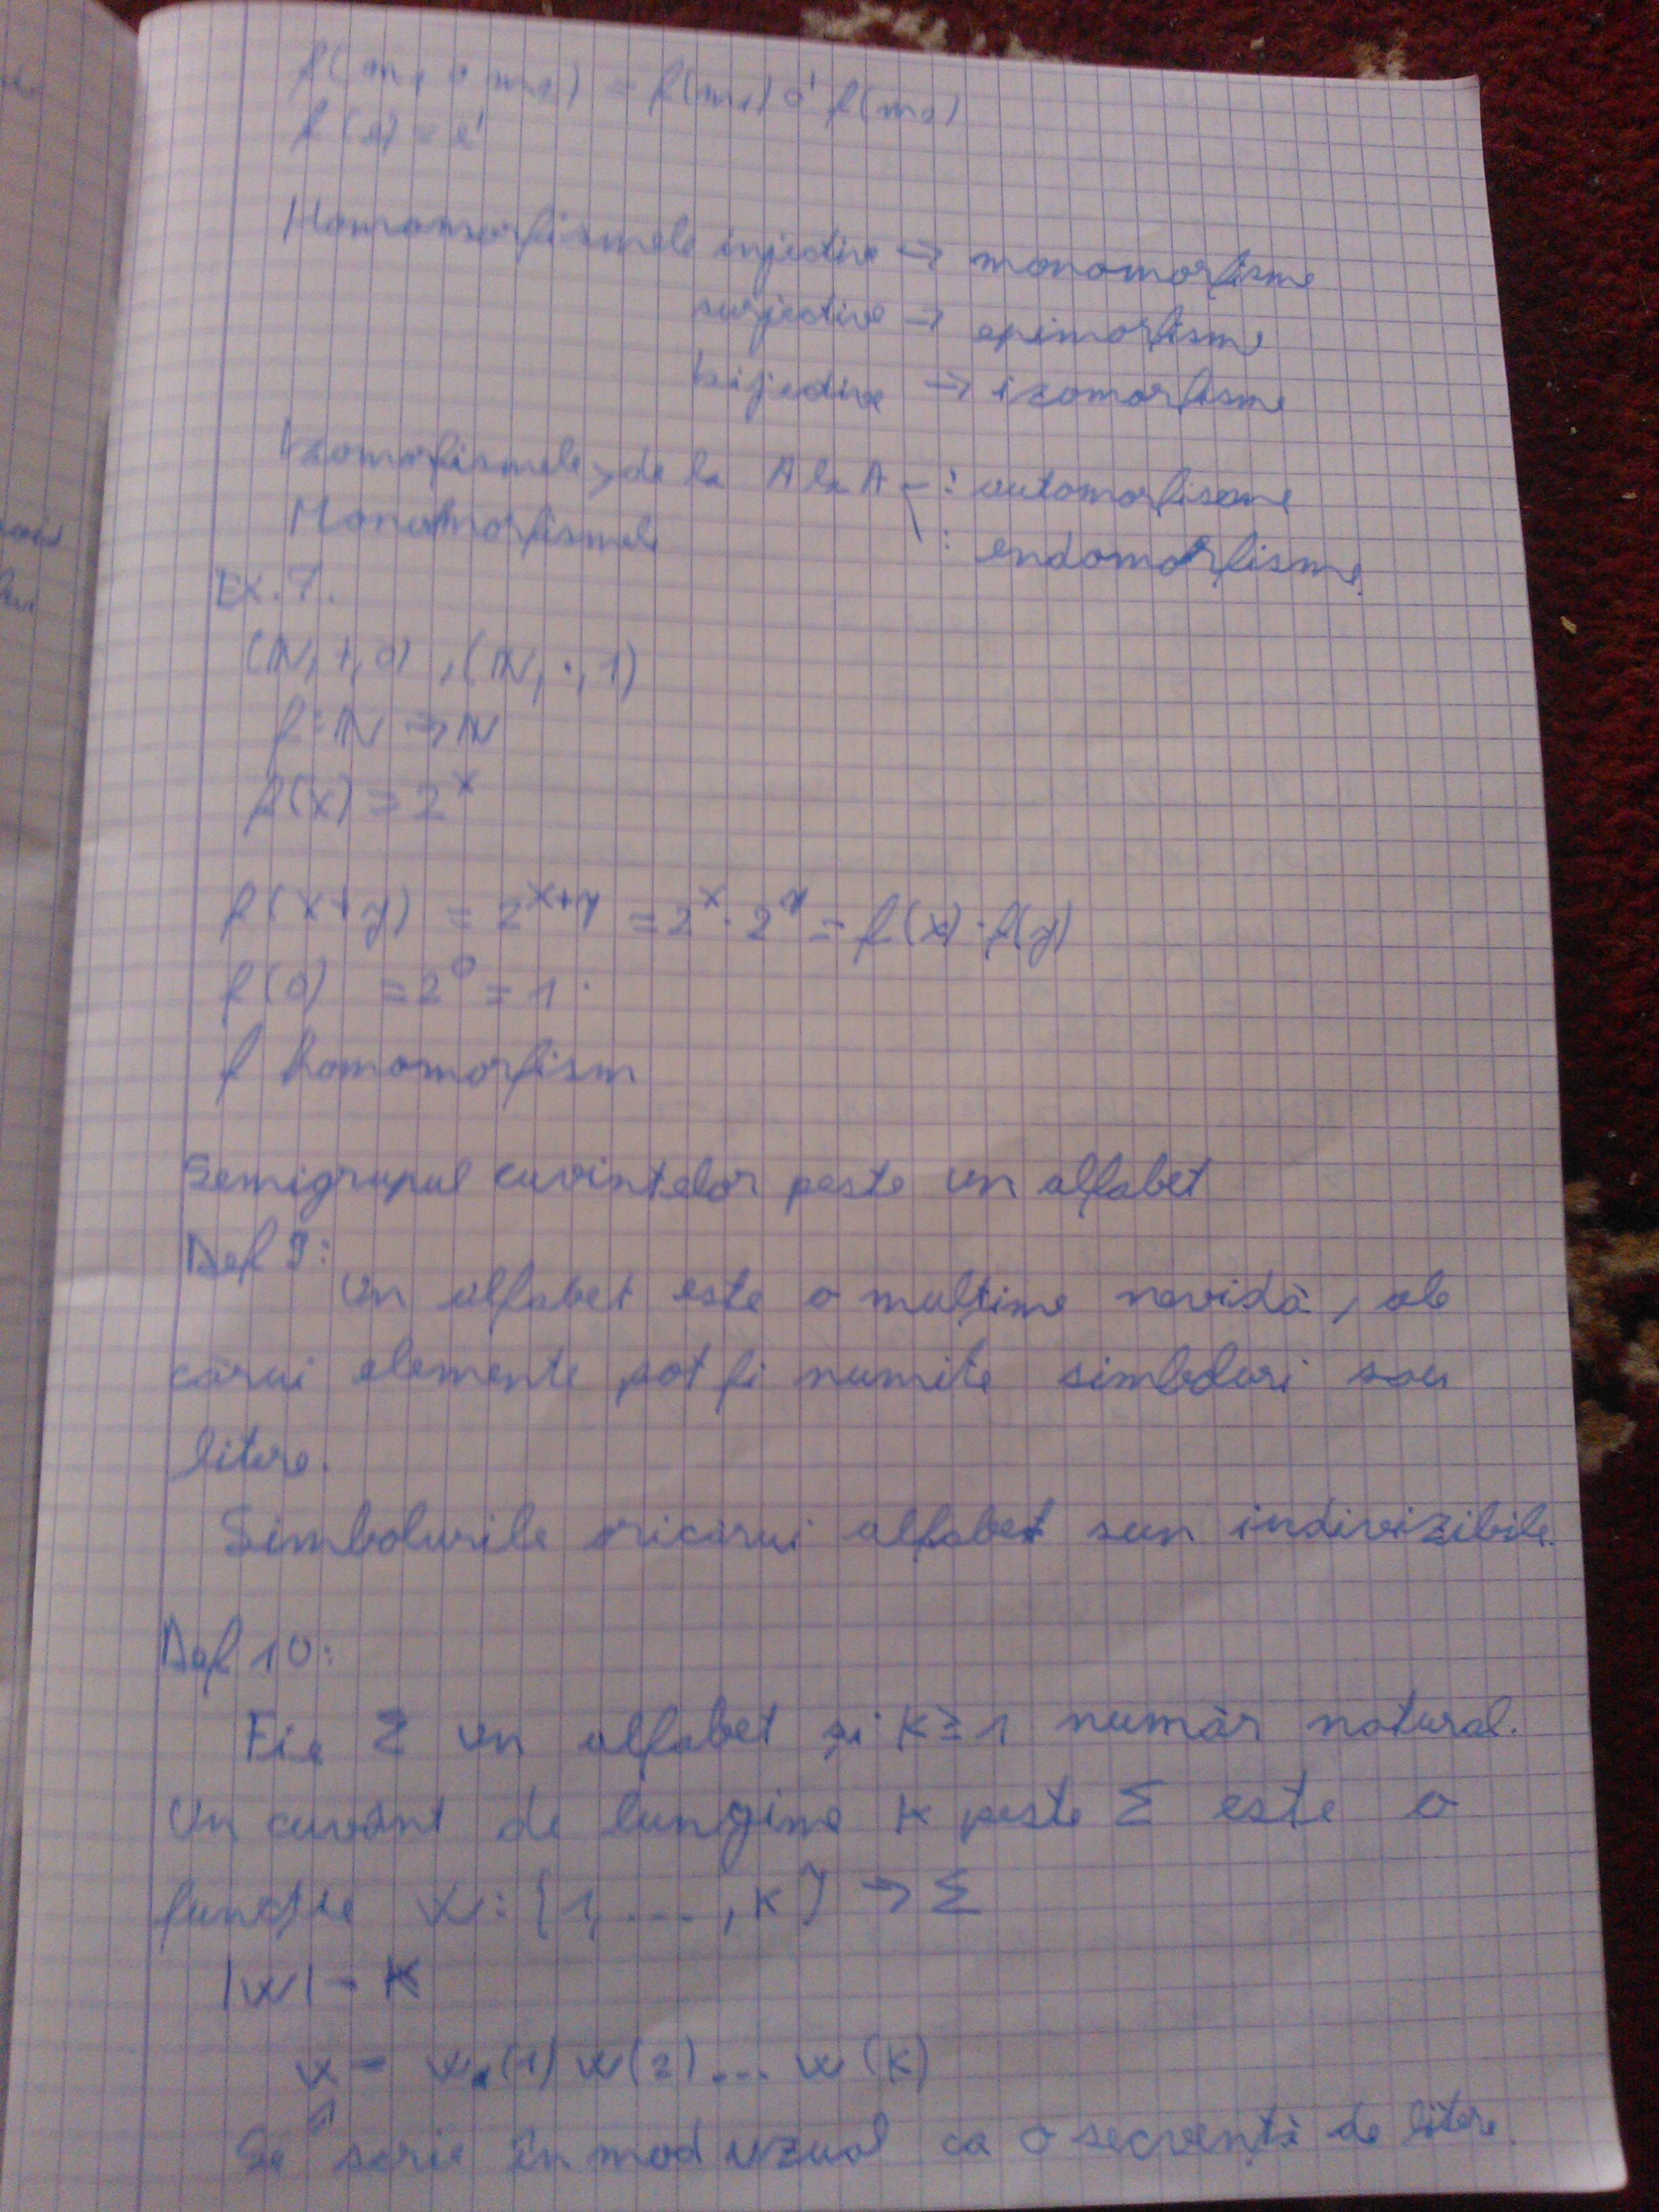 f(m₁ ∘ m₂) = f(m₁) ∘' f(m₂)
f(e) = e'
Homomorfismele injective → monomorfisme
surjective → epimorfisme
bijective → izomorfisme
Izomorfismele, de la A la A -: automorfisme
Monomorfismele \ : endomorfisme
Ex. 7.
(ℕ, +, 0), (ℕ, ·, 1)
f: ℕ → ℕ
f(x) = 2ˣ
f(x+y) = 2ˣ⁺ʸ = 2ˣ · 2ʸ = f(x) · f(y)
f(0) = 2⁰ = 1.
f homomorfism
Semigrupul cuvintelor peste un alfabet
Def 9:
Un alfabet este o mulțime nevidă, ale
cărui elemente pot fi numite simboluri sau
litere.
Simbolurile oricărui alfabet sun indivizibile.
Def 10:
Fie Σ un alfabet și k ≥ 1 număr natural.
Un cuvânt de lungime k peste Σ este o
funcție w: {1, ..., k} → Σ
|w| = k
w = w(1) w(2) ... w(k)
Se scrie în mod uzual ca o secvență de litere.